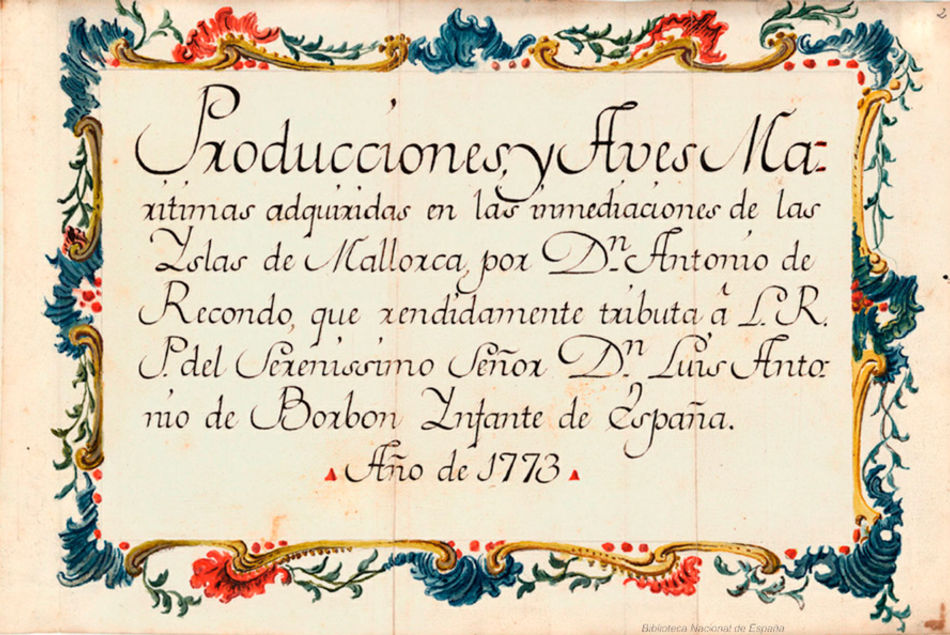 Producciones, y Aves Ma=
ritimas adquiridas en las inmediaciones de las
Yslas de Mallorca, por Dn. Antonio de
Recondo, que rendidamente tributa â L. R.
P. del Serenissimo Señor Dn. Luis Anto=
nio de Borbon Ynfante de España.
Año de 1773
Biblioteca Nacional de España
2